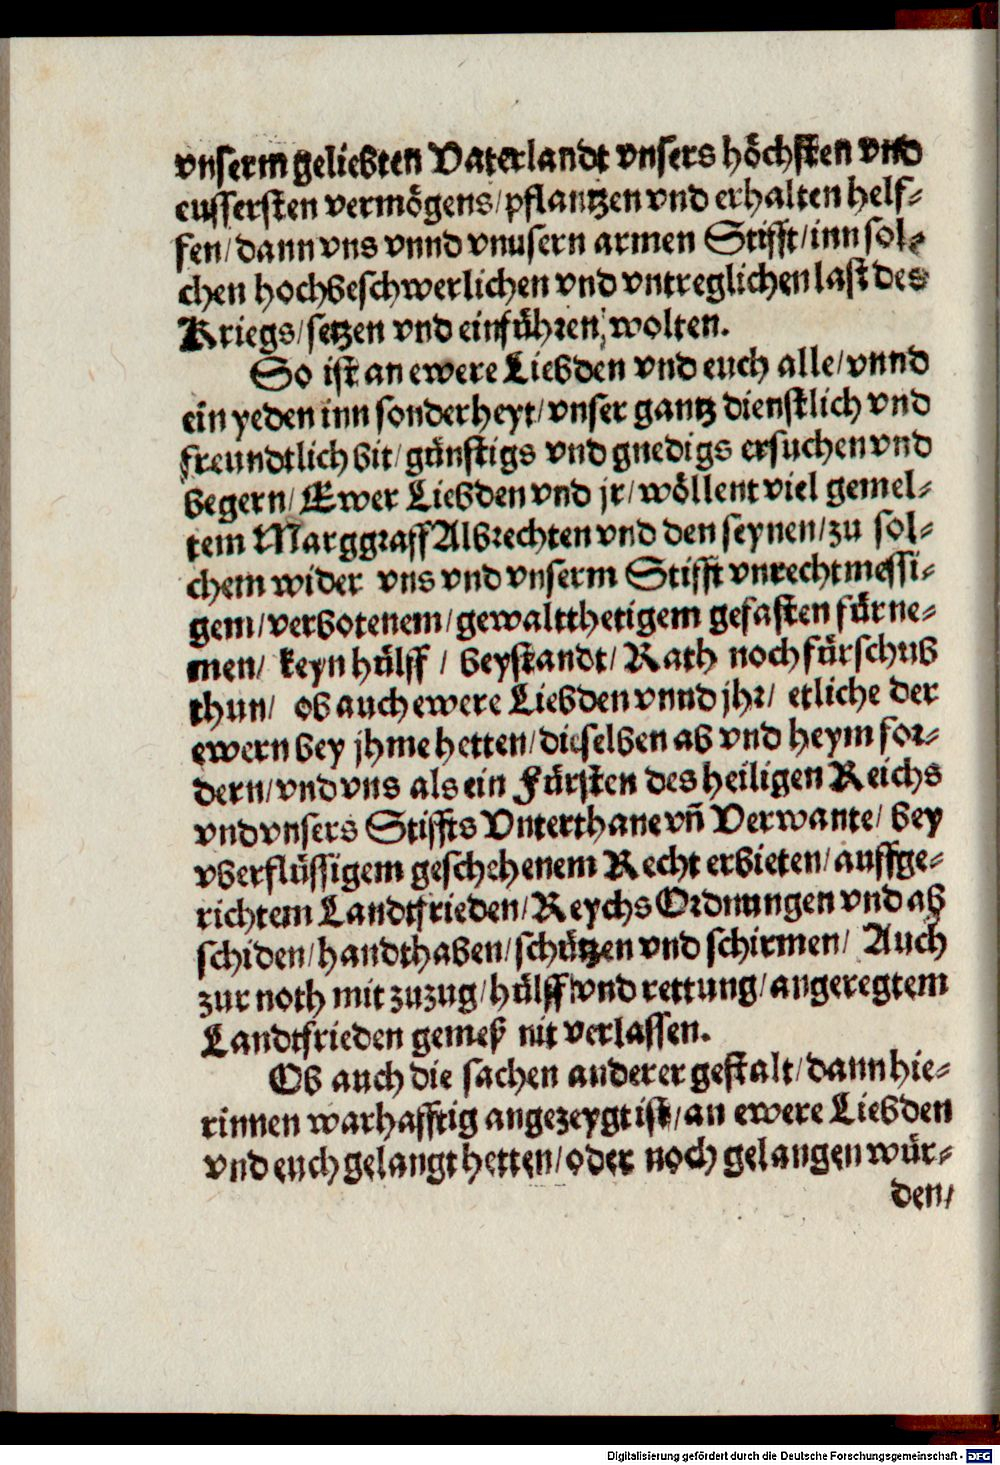 vnserm geliebten Vaterlandt vnsers höchsten vnd
eussersten vermögens/pflantzen vnd erhalten helf-
fen/dann vns vnnd vnusern armen Stifft/inn sol-
chen hochbeschwerlichen vnd vntreglichen last des
Kriegs/setzen vnd einführen/wolten.
So ist an ewere Liebden vnd euch alle/vnnd
ein yeden inn sonderheyt/vnser gantz dienstlich vnd
freundtlich bit/günstigs vnd gnedigs ersuchen vnd
begern/Ewer Liebden vnd jr/wöllent viel gemel-
tem Marggraff Albrechten vnd den seynen/zu sol-
chem wider vns vnd vnserm Stifft vnrechtmessi-
gem/verbotenem/gewaltthetigem gefasten fürne-
men/ keyn hülff / beystandt/Rath noch fürschub
thun/ ob auch ewere Liebden vnnd jhr/ etliche der
ewern bey jhme hetten/dieselben ab vnd heym for-
dern/vnd vns als ein Fürsten des heiligen Reichs
vnd vnsers Stiffts Vnterthane vñ Verwante/ bey
vberflüssigem geschehenem Recht erbieten/auffge-
richtem Landtfrieden/Reychs Ordnungen vnd ab
schiden/handthaben/schützen vnd schirmen/ Auch
zur noth mit zuzug/hülff vnd rettung/angeregtem
Landtfrieden gemeß nit verlassen.
Ob auch die sachen anderer gestalt/dann hie-
rinnen warhafftig angezeygt ist/an ewere Liebden
vnd euch gelangt hetten/oder noch gelangen wür-
den/
Digitalisierung gefördert durch die Deutsche Forschungsgemeinschaft - DFG